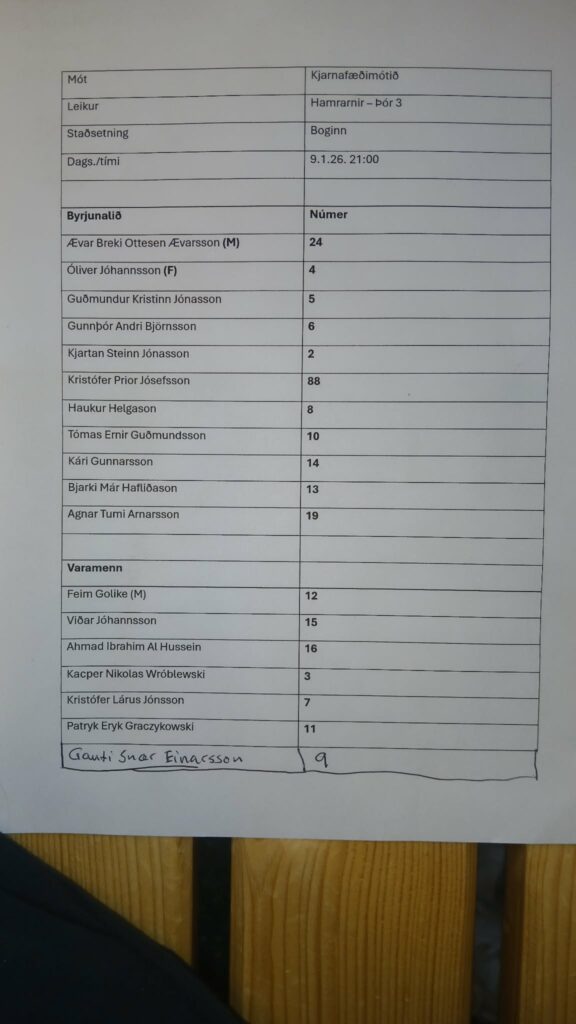 Mót Kjarnafæðimótið
Leikur Hamrarnir – Þór 3
Staðsetning Boginn
Dags./tími 9.1.26. 21:00
Byrjunalið Númer
Ævar Breki Ottesen Ævarsson (M) 24
Óliver Jóhannsson (F) 4
Guðmundur Kristinn Jónasson 5
Gunnþór Andri Björnsson 6
Kjartan Steinn Jónasson 2
Kristófer Prior Jósefsson 88
Haukur Helgason 8
Tómas Ernir Guðmundsson 10
Kári Gunnarsson 14
Bjarki Már Hafliðason 13
Agnar Tumi Arnarsson 19
Varamenn
Feim Golike (M) 12
Viðar Jóhannsson 15
Ahmad Ibrahim Al Hussein 16
Kacper Nikolas Wróblewski 3
Kristófer Lárus Jónsson 7
Patryk Eryk Graczykowski 11
Gauti Snær Einarsson 9